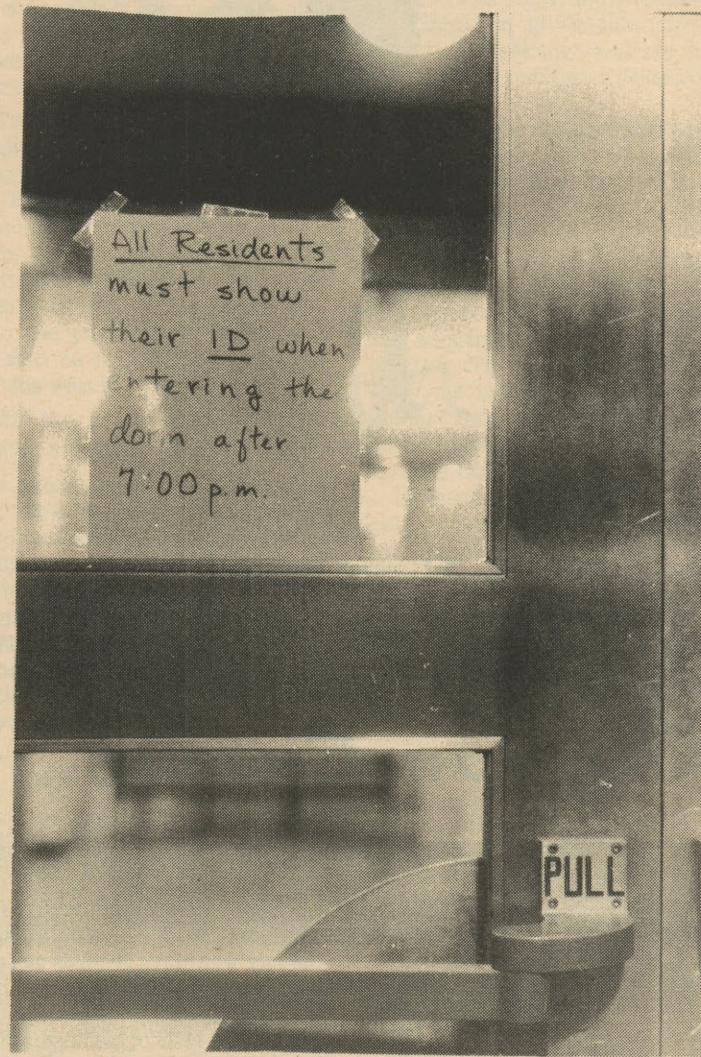 All Residents
must show
their ID when
entering the
dorm after
7:00 p.m.
PULL